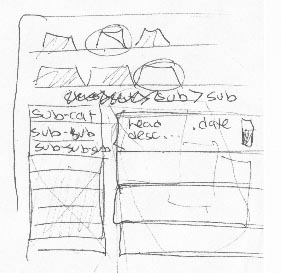 sub > sub
sub-cat
sub-sub
sub-sub-sub
head
desc...
.date